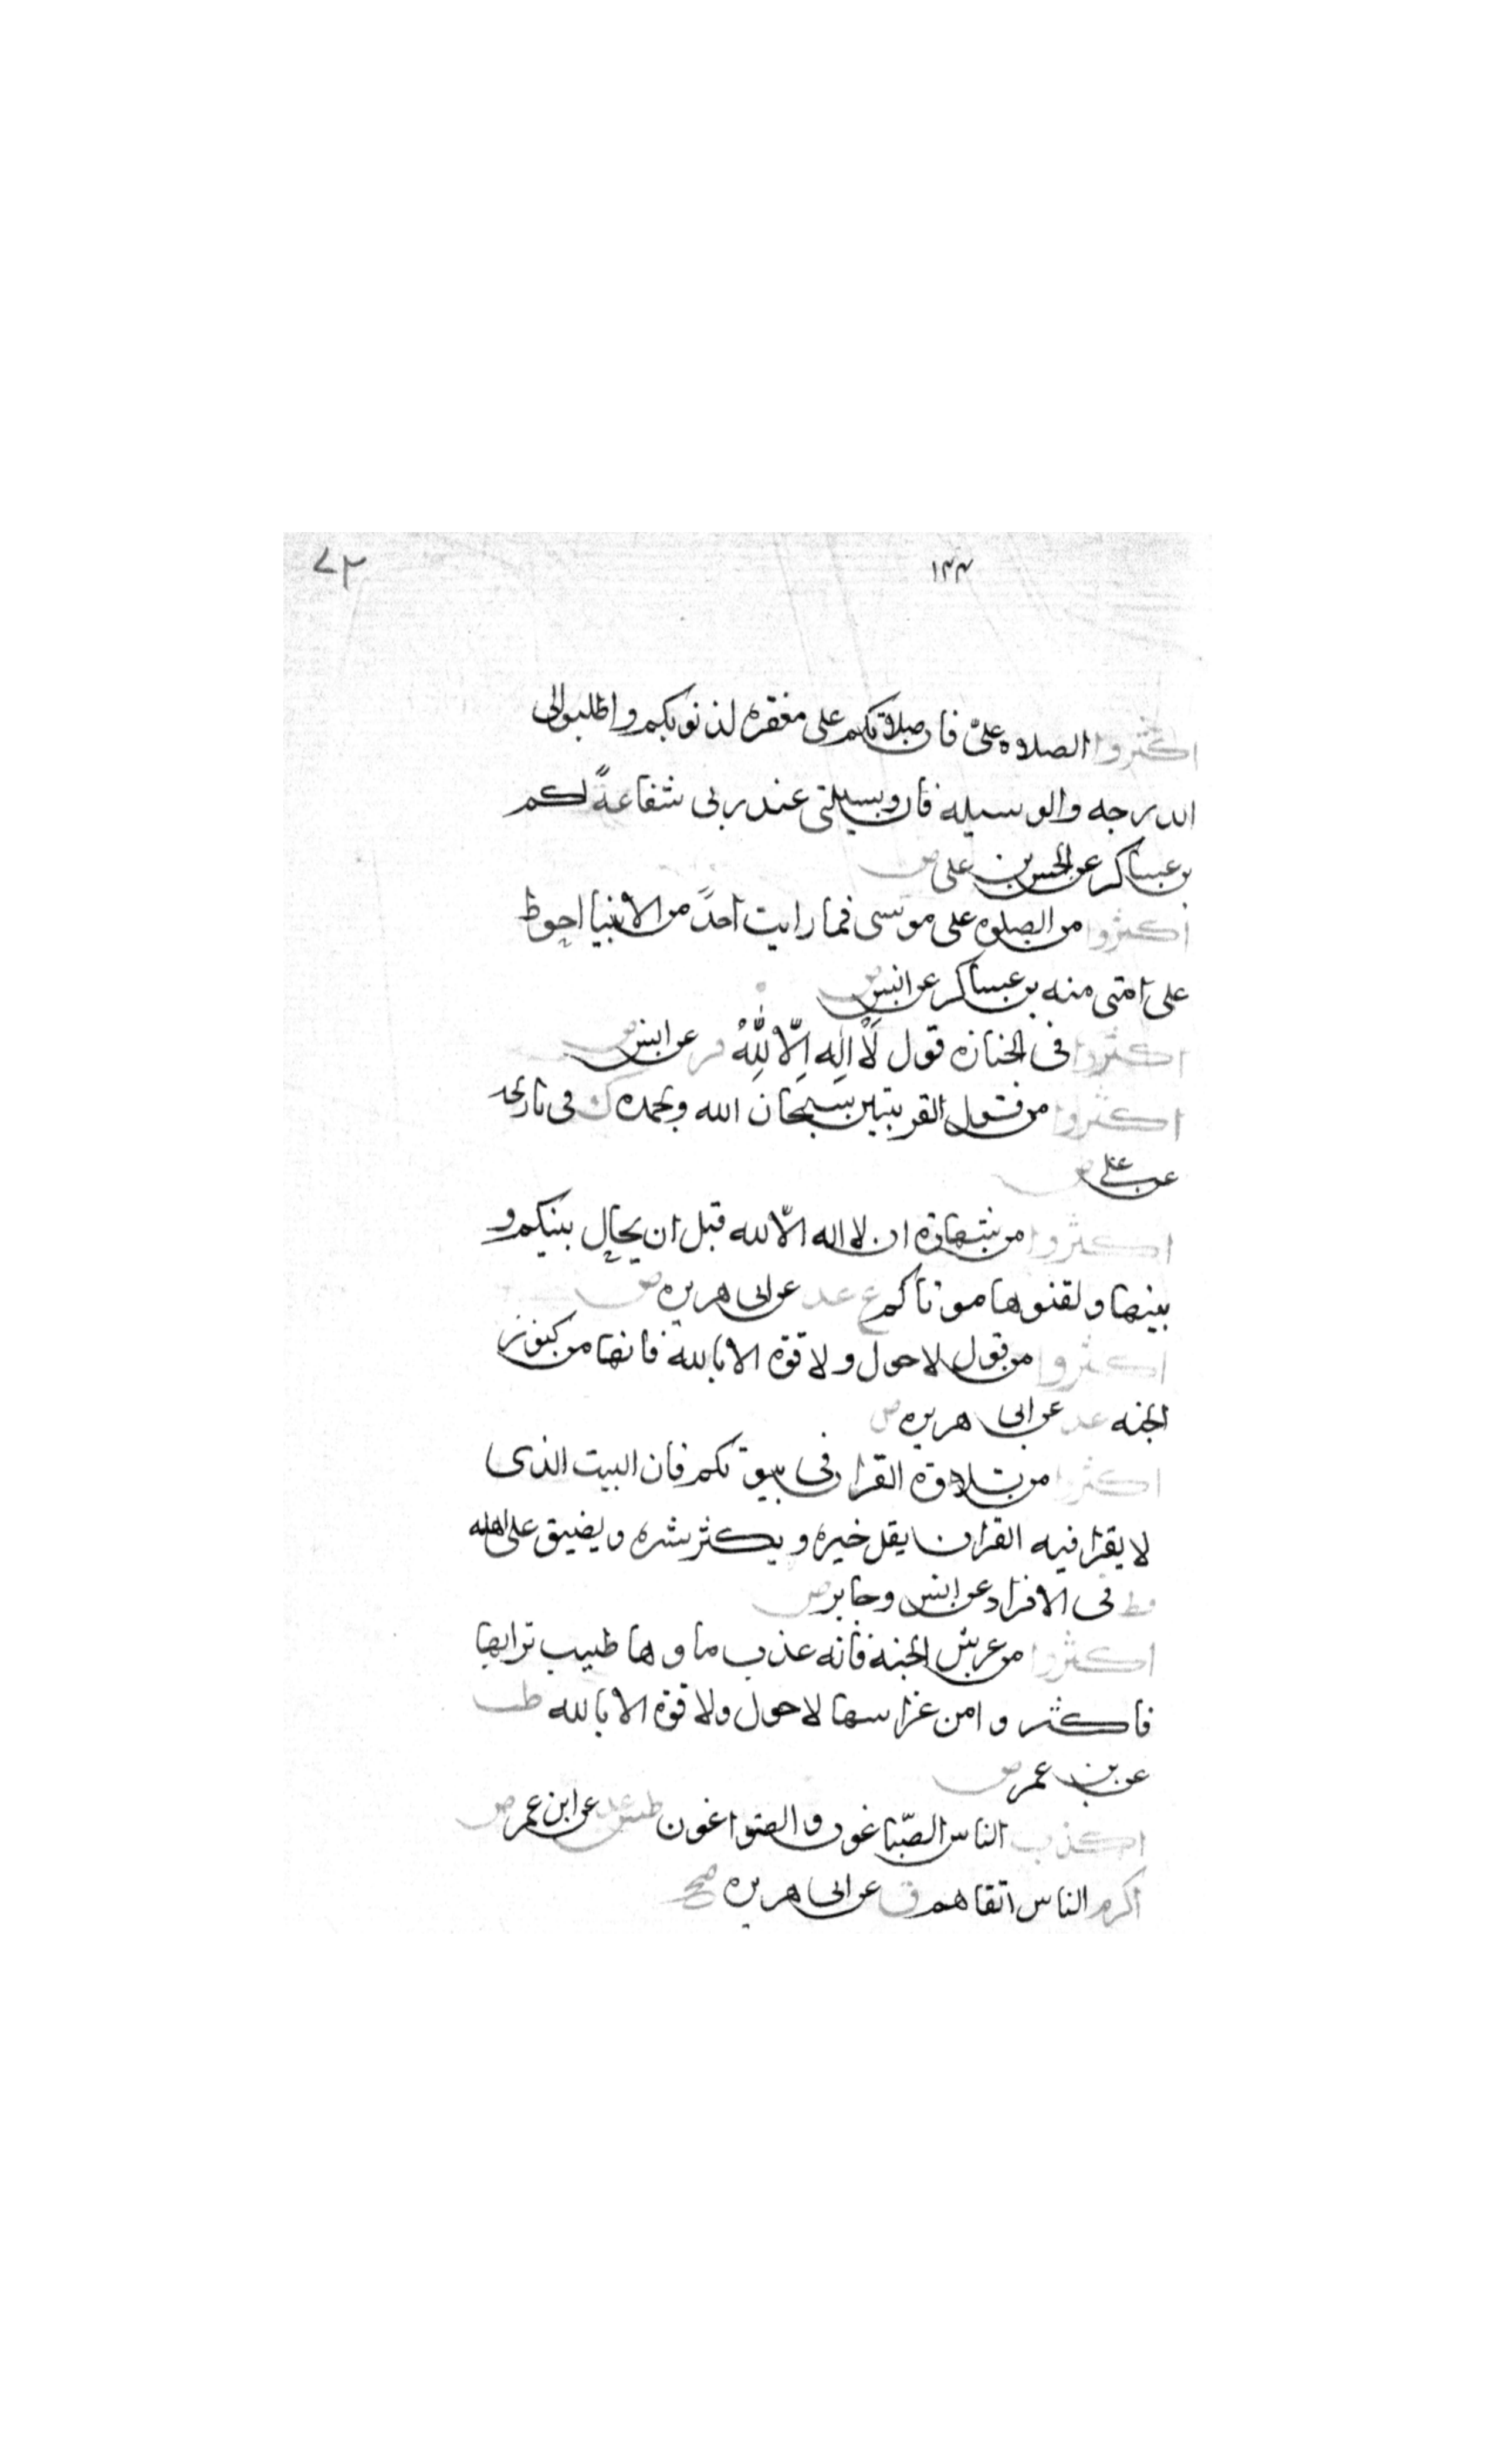 ١٣٣ ٧٢
اكثروا الصلاه علىّ فان صلاتكم على مغفره لذنوبكم واطلبوا لى
الدرجه والوسيله فان وسيلتى عند ربى شفاعةً لكم
بن عساكر عن الحسن بن على ض
اكثروا من الصلوه على موسى فما رايت احدً من الانبيا احوط
على امتى منه بن عساكر عن انس ض
اكثروا فى الجنازه قول لَا اِلٰه اِلّا لله فر عن انس ض
اكثروا من قول القرينتين سبحان الله وبحمده ك فى تاريخه
عن على ض
اكثروا من شهادة ان لا اله الا لله قبل ان يحال بينكم و
بينها ولقنوها موتاكم ع عد عن ابى هريره ض
اكثروا من قول لا حول ولا قوة الا بالله فانها من كنوز
الجنه عد عن ابى هريره ض
اكثروا من تلاوة القران فى بيوتكم فان البيت الذى
لا يقرا فيه القران يقل خيره ويكثر شره ويضيق على اهله
قط فى الافراد عن انس وجابر ض
اكثروا من غرس الجنه فانه عذب ماوها طيب ترابها
فاكثروا من غراسها لا حول ولا قوة الا بالله طب
عن بن عمر ض
اكذب الناس الصّباغون والصواغون عن ابن عمر ض
اكرم الناس اتقاهم ق عن ابى هريره صح